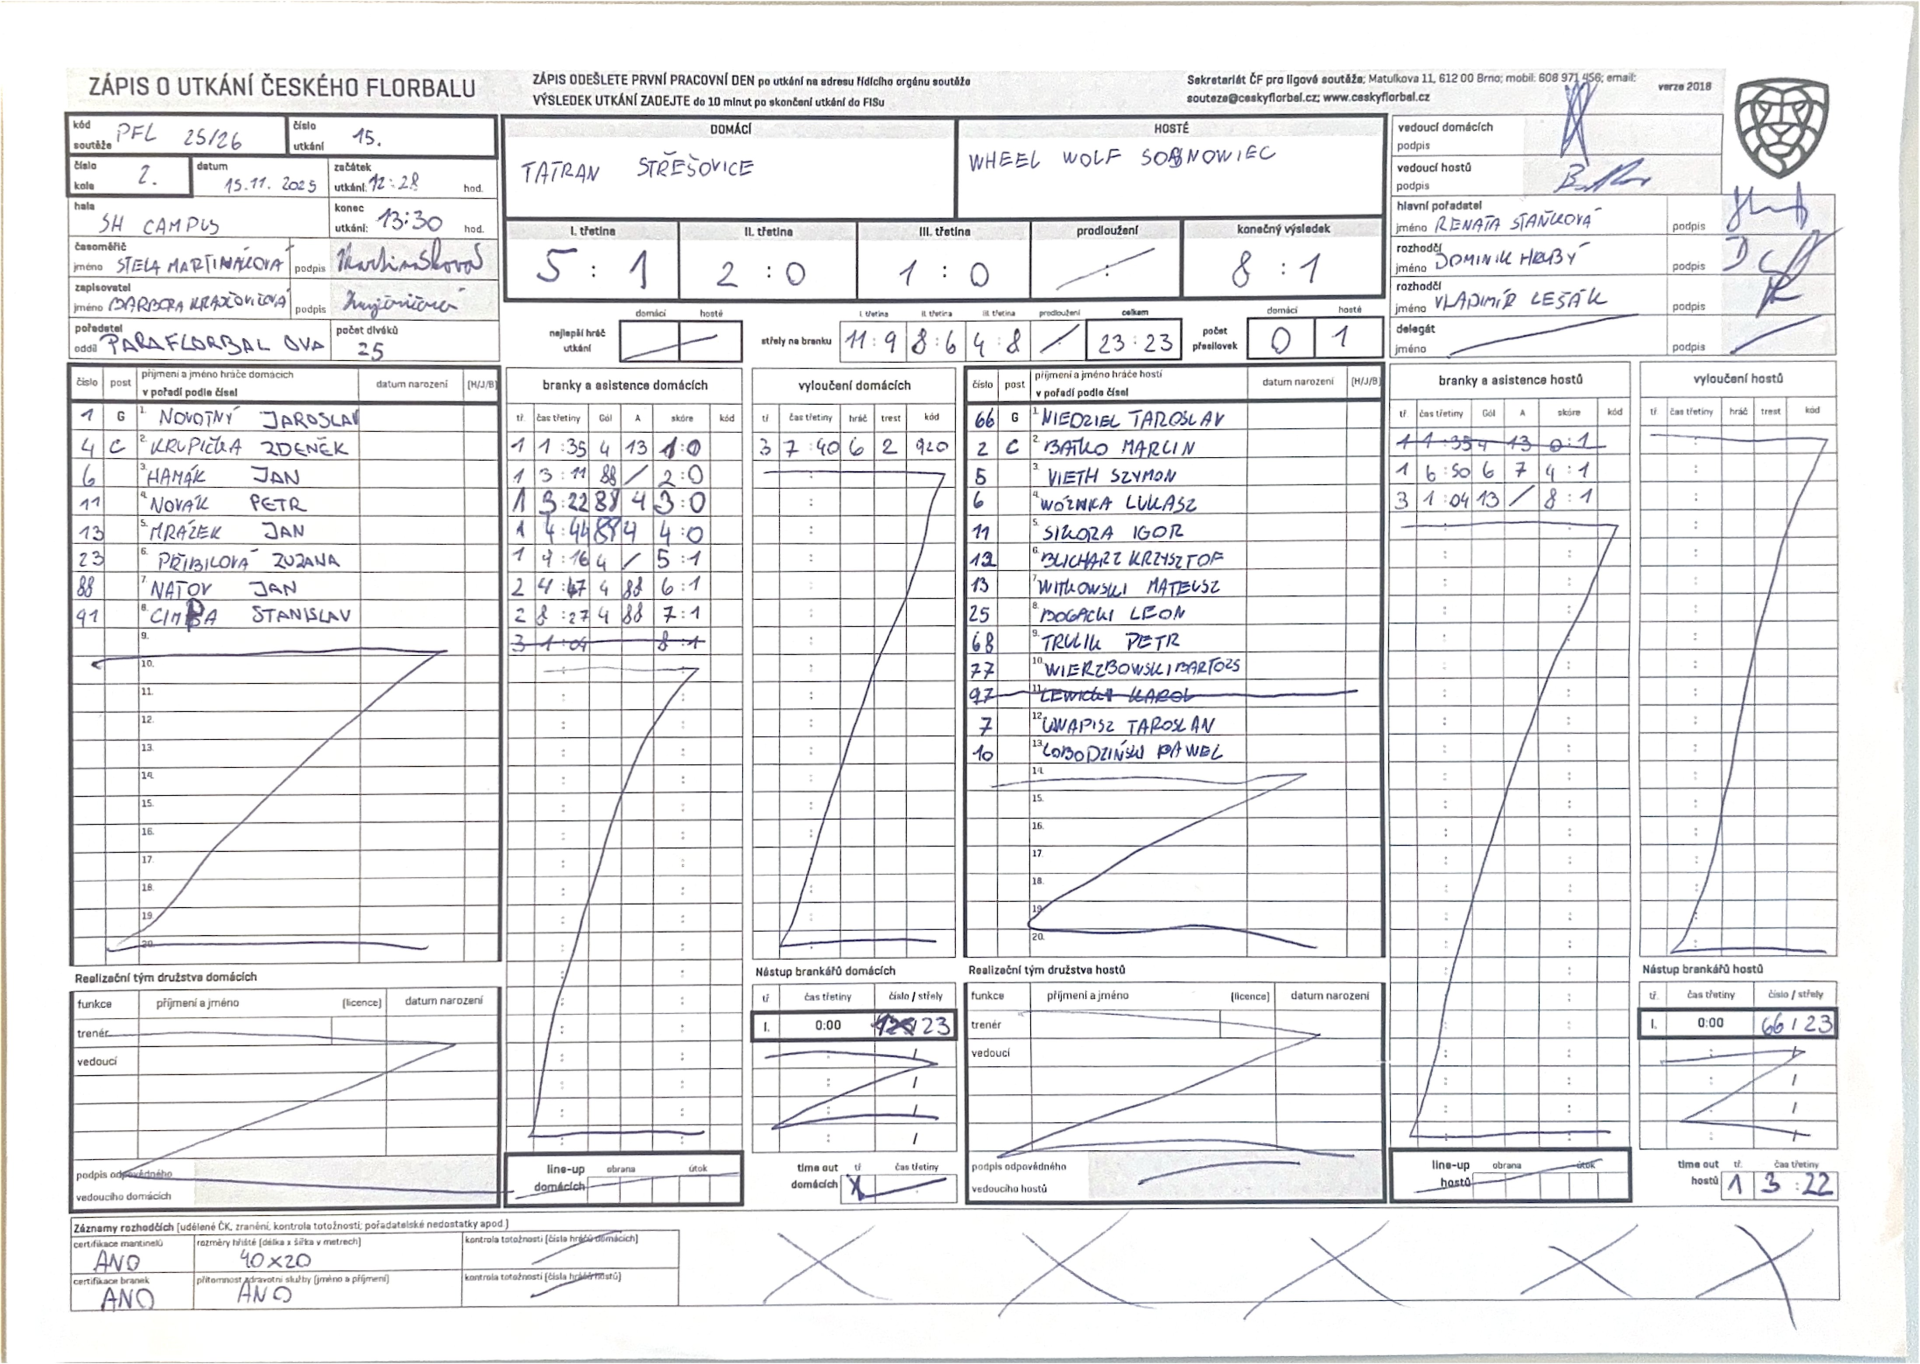 ZÁPIS O UTKÁNÍ ČESKÉHO FLORBALU
ZÁPIS ODEŠLETE PRVNÍ PRACOVNÍ DEN po utkání na adresu řídícího orgánu soutěže
VÝSLEDEK UTKÁNÍ ZADEJTE do 10 minut po skončení utkání do FISu
Sekretariát ČF pro ligové soutěže; Matulkova 11, 612 00 Brno; mobil: 608 971 456; email:
souteze@ceskyflorbal.cz; www.ceskyflorbal.cz
verze 2018
kód soutěže PFL 25/26
číslo utkání 15.
číslo kola 2.
datum 15.11. 2025
začátek utkání: 12:28 hod.
hala SH CAMPUS
konec utkání: 13:30 hod.
časoměřič
jméno STELA MARTINÁKOVÁ podpis
zapisovatel
jméno BARBORA KRAJČOVIČOVÁ podpis
pořadatel
oddíl PARAFLORBAL OVA
počet diváků 25
DOMÁCÍ
TATRAN STŘEŠOVICE
HOSTÉ
WHEEL WOLF SOSNOWIEC
I. třetina II. třetina III. třetina prodloužení konečný výsledek
5 : 1 2 : 0 1 : 0 : 8 : 1
nejlepší hráč utkání domácí hosté
střely na branku I. třetina II. třetina III. třetina prodloužení celkem
11:9 8:6 4:8 / 23:23
počet přesilovek domácí hosté
0 1
vedoucí domácích
podpis
vedoucí hostů
podpis
hlavní pořadatel
jméno RENATA STAŇKOVÁ podpis
rozhodčí
jméno DOMINIK HRUBÝ podpis
rozhodčí
jméno VLADIMÍR LEŠÁK podpis
delegát
jméno podpis
číslo post příjmení a jméno hráče domácích v pořadí podle čísel datum narození [H/J/B]
1 G 1. NOVOTNÝ JAROSLAV
4 C 2. KRUPIČKA ZDENĚK
6 3. HAMÁK JAN
11 4. NOVÁK PETR
13 5. MRÁZEK JAN
23 6. PŘIBILOVÁ ZUZANA
88 7. NAŤOV JAN
91 8. CIMBA STANISLAV
9.
10.
11.
12.
13.
14.
15.
16.
17.
18.
19.
20.
branky a asistence domácích
tř. čas třetiny Gól A skóre kód
1 1:35 4 13 1:0
1 3:11 88 / 2:0
1 3:22 88 4 3:0
1 4:44 88 4 4:0
1 7:16 4 / 5:1
2 4:47 4 88 6:1
2 8:27 4 88 7:1
3 1:04 8:1
vyloučení domácích
tř čas třetiny hráč trest kód
3 7:40 6 2 920
číslo post příjmení a jméno hráče hostí v pořadí podle čísel datum narození [H/J/B]
66 G 1. NIEDZIEL TAROSLAV
2 C 2. BATKO MARCIN
5 3. VIETH SZYMON
6 4. WOŹNIKA LUKASZ
11 5. SIKORA IGOR
12 6. BLICHARZ KRZYSZTOF
13 7. WITKOWSKI MATEUSZ
25 8. BOGACKI LEON
68 9. TRULIK PETR
77 10. WIERZBOWSKI BARTOZS
97 11. LEWICKI KAROL
7 12. UNAPISZ TAROSLAN
10 13. ŁOBODZIŃSKI PAWEL
14.
15.
16.
17.
18.
19.
20.
branky a asistence hostů
tř. čas třetiny Gól A skóre kód
1 1:35 4 13 0:1
1 6:50 6 7 4:1
3 1:04 13 / 8:1
vyloučení hostů
tř čas třetiny hráč trest kód
Realizační tým družstva domácích
funkce příjmení a jméno [licence] datum narození
trenér
vedoucí
podpis odpovědného
vedoucího domácích
line-up domácích obrana útok
Nástup brankářů domácích
tř čas třetiny číslo / střely
I. 0:00 23
time out domácích tř čas třetiny
Realizační tým družstva hostů
funkce příjmení a jméno [licence] datum narození
trenér
vedoucí
podpis odpovědného
vedoucího hostů
line-up hostů obrana útok
Nástup brankářů hostů
tř. čas třetiny číslo / střely
I. 0:00 66 / 23
time out hostů tř. čas třetiny
1 3:22
Záznamy rozhodčích [udělené ČK, zranění, kontrola totožnosti, pořadatelské nedostatky apod.]
certifikace mantinelů ANO
rozměry hřiště [délka x šířka v metrech] 40x20
kontrola totožnosti [čísla hráčů domácích]
certifikace branek ANO
přítomnost zdravotní služby [jméno a příjmení] ANO
kontrola totožnosti [čísla hráčů hostů]